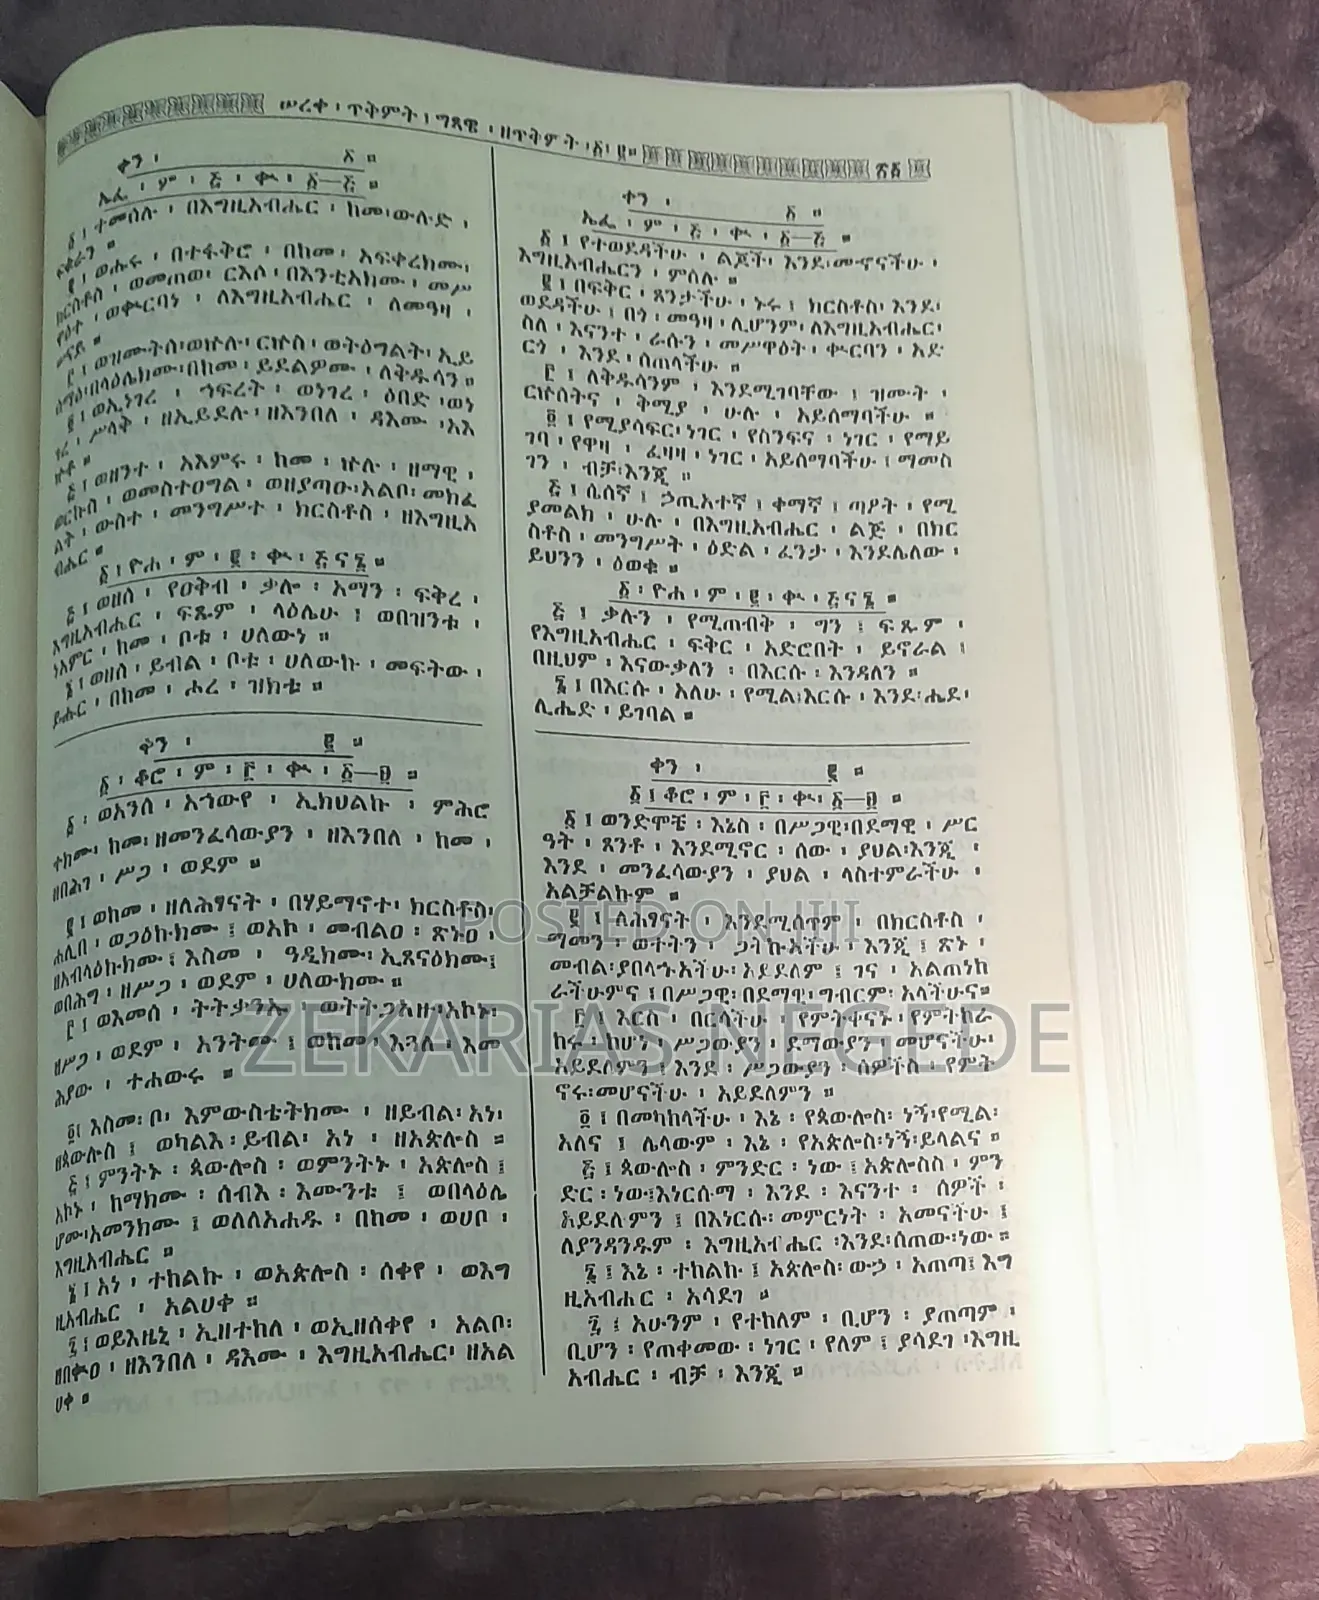 ሠረቀ ፡ ጥቅምት ፡ ግጻዌ ፡ ዘጥቅምት ፡ ፩ ፡ ፪ ።
ቀን ፡ ፩ ።
ኤፌ ፡ ም ፡ ፭ ፡ ቍ ፡ ፩—፭ ።
፩ ፡ ተመሰሉ ፡ በእግዚአብሔር ፡ ከመ ፡ ውሉድ ፡
ፍቁራን ።
፪ ፡ ወሑሩ ፡ በተፋቅሮ ፡ በከመ ፡ አፍቀረክሙ ፡
ክርስቶስ ፡ ወመጠወ ፡ ርእሶ ፡ በእንቲአክሙ ፡ መሥ
ዋዕተ ፡ ወቍርባነ ፡ ለእግዚአብሔር ፡ ለመዓዛ ፡
ሠናይ ።
፫ ፡ ወዝሙትሰ ፡ ወኵሉ ፡ ርኵስ ፡ ወትዕግልት ፡ ኢይ
ሰማዕ ፡ በላዕሌክሙ ፡ በከመ ፡ ይደልዎሙ ፡ ለቅዱሳን ።
፬ ፡ ወኢነገረ ፡ ኀፍረት ፡ ወነገረ ፡ ዕበድ ፡ ወነ
ገረ ፡ ሥላቅ ፡ ዘኢይደሉ ፡ ዘእንበለ ፡ ዳእሙ ፡ አእ
ኵቶ ።
፭ ፡ ወዘንተ ፡ አእምሩ ፡ ከመ ፡ ኵሉ ፡ ዘማዊ ፡
ወርኩስ ፡ ወመስተዐግል ፡ ወዘያጣዑ ፡ አልቦ ፡ መክፈ
ልት ፡ ውስተ ፡ መንግሥተ ፡ ክርስቶስ ፡ ዘእግዚአ
ብሔር ።
፩ ፡ ዮሐ ፡ ም ፡ ፪ ፡ ቍ ፡ ፭ ና ፮ ።
፭ ፡ ወዘሰ ፡ የዐቅብ ፡ ቃሎ ፡ አማን ፡ ፍቅረ ፡
እግዚአብሔር ፡ ፍጹም ፡ ላዕሌሁ ፤ ወበዝንቱ ፡
ነአምር ፡ ከመ ፡ ቦቱ ፡ ሀለውነ ።
፮ ፡ ወዘሰ ፡ ይብል ፡ ቦቱ ፡ ሀለውኩ ፡ መፍትው ፡
ይሑር ፡ በከመ ፡ ሖረ ፡ ዝክቱ ።
ቀን ፡ ፪ ።
፩ ፡ ቆሮ ፡ ም ፡ ፫ ፡ ቍ ፡ ፩—፱ ።
፩ ፡ ወአንሰ ፡ አኀውየ ፡ ኢክህልኩ ፡ ምሕሮ
ተክሙ ፡ ከመ ፡ ዘመንፈሳውያን ፡ ዘእንበለ ፡ ከመ ፡
ዘበሕገ ፡ ሥጋ ፡ ወደም ።
፪ ፡ ወከመ ፡ ዘለሕፃናት ፡ በሃይማኖተ ፡ ክርስቶስ ፡
ሐሊበ ፡ ወጋዕኩክሙ ፤ ወአኮ ፡ መብልዐ ፡ ጽኑዐ ፡
ዘአብላዕኩክሙ ፤ እስመ ፡ ዓዲክሙ ፡ ኢጸናዕክሙ ፤
ወበሕግ ፡ ዘሥጋ ፡ ወደም ፡ ሀለውክሙ ።
፫ ፡ ወእመሰ ፡ ትትቃንኡ ፡ ወትትጋአዙ ፡ አኮኑ ፡
ዘሥጋ ፡ ወደም ፡ አንትሙ ፤ ወከመ ፡ እጓለ ፡ እመ
ሕያው ፡ ተሐውሩ ።
፬ ፡ እስመ ፡ ቦ ፡ እምውስቴትክሙ ፡ ዘይብል ፡ አነ ፡
ዘጳውሎስ ፤ ወካልእ ፡ ይብል ፡ አነ ፡ ዘአጵሎስ ።
፭ ፤ ምንትኑ ፡ ጳውሎስ ፡ ወምንትኑ ፡ አጵሎስ ፤
አኮኑ ፡ ከማክሙ ፡ ሰብእ ፡ እሙንቱ ፤ ወበላዕሌ
ሆሙ ፡ አመንክሙ ፤ ወለለአሐዱ ፡ በከመ ፡ ወሀቦ ፡
እግዚአብሔር ።
፮ ፤ አነ ፡ ተከልኩ ፡ ወአጵሎስ ፡ ሰቀየ ፡ ወእግ
ዚአብሔር ፡ አልሀቀ ።
፯ ፤ ወይእዜኒ ፡ ኢዘተከለ ፡ ወኢዘሰቀየ ፡ አልቦ ፡
ዘበቍዐ ፡ ዘእንበለ ፡ ዳእሙ ፡ እግዚአብሔር ፡ ዘአል
ሀቀ ።
ቀን ፡ ፩ ።
ኤፌ ፡ ም ፡ ፭ ፡ ቍ ፡ ፩—፭ ።
፩ ፤ የተወደዳችሁ ፡ ልጆች ፡ እንደ ፡ መኾናችሁ ፡
እግዚአብሔርን ፡ ምሰሉ ።
፪ ፤ በፍቅር ፡ ጸንታችሁ ፡ ኑሩ ፤ ክርስቶስ ፡ እንደ ፡
ወደዳችሁ ፤ በጎ ፡ መዓዛ ፡ ሊሆንም ፡ ለእግዚአብሔር ፡
ስለ ፡ እናንተ ፡ ራሱን ፡ መሥዋዕት ፡ ቍርባን ፡ አድ
ርጎ ፡ እንደ ፡ ሰጠላችሁ ።
፫ ፤ ለቅዱሳንም ፡ እንደሚገባቸው ፤ ዝሙት ፡
ርኵሰትና ፡ ቅሚያ ፡ ሁሉ ፡ አይሰማባችሁ ።
፬ ፤ የሚያሳፍር ፡ ነገር ፡ የስንፍና ፡ ነገር ፡ የማይ
ገባ ፡ የዋዛ ፡ ፈዛዛ ፡ ነገር ፡ አይሰማባችሁ ፤ ማመስ
ገን ፡ ብቻ ፡ እንጂ ።
፭ ፤ ሴሰኛ ፤ ኃጢአተኛ ፤ ቀማኛ ፤ ጣዖት ፡ የሚ
ያመልክ ፡ ሁሉ ፡ በእግዚአብሔር ፡ ልጅ ፡ በክር
ስቶስ ፡ መንግሥት ፡ ዕድል ፡ ፈንታ ፡ እንደሌለው ፡
ይህንን ፡ ዕወቁ ።
፩ ፡ ዮሐ ፡ ም ፡ ፪ ፡ ቍ ፡ ፭ ና ፮ ።
፭ ፤ ቃሉን ፡ የሚጠብቅ ፡ ግን ፤ ፍጹም ፡
የእግዚአብሔር ፡ ፍቅር ፡ አድሮበት ፡ ይኖራል ፤
በዚህም ፡ እናውቃለን ፡ በእርሱ ፡ እንዳለን ።
፮ ፤ በእርሱ ፡ አለሁ ፡ የሚል ፡ እርሱ ፡ እንደ ፡ ሔደ ፡
ሊሔድ ፡ ይገባል ።
ቀን ፡ ፪ ።
፩ ፤ ቆሮ ፡ ም ፡ ፫ ፡ ቍ ፡ ፩—፱ ።
፩ ፤ ወንድሞቼ ፡ እኔስ ፡ በሥጋዊ ፡ በደማዊ ፡ ሥር
ዓት ፡ ጸንቶ ፡ እንደሚኖር ፡ ሰው ፡ ያህል ፡ እንጂ ፡
እንደ ፡ መንፈሳውያን ፡ ያህል ፡ ላስተምራችሁ ፡
አልቻልኩም ።
፪ ፤ ለሕፃናት ፡ እንደሚሰጥም ፡ በክርስቶስ ፡
ማመን ፡ ወተትን ፡ ጋትኩአችሁ ፡ እንጂ ፤ ጽኑ ፡
መብል ፡ ያበላኁአችሁ ፡ አይደለም ፤ ገና ፡ አልጠነከ
ራችሁምና ፤ በሥጋዊ ፡ በደማዊ ፡ ግብርም ፡ አላችሁና ።
፫ ፤ እርስ ፡ በርሳችሁ ፡ የምትቀናኑ ፡ የምትከራ
ከሩ ፡ ከሆነ ፡ ሥጋውያን ፡ ደማውያን ፡ መሆናችሁ ፡
አይደለምን ፤ እንደ ፡ ሥጋውያን ፡ ሰዎችስ ፡ የምት
ኖሩ ፡ መሆናችሁ ፡ አይደለምን ።
፬ ፤ በመካከላችሁ ፡ እኔ ፡ የጳውሎስ ፡ ነኝ ፡ የሚል ፡
አለና ፤ ሌላውም ፡ እኔ ፡ የአጵሎስ ፡ ነኝ ፡ ይላልና ።
፭ ፤ ጳውሎስ ፡ ምንድር ፡ ነው ፤ አጵሎስስ ፡ ምን
ድር ፡ ነው ፤ እነርሱማ ፡ እንደ ፡ እናንተ ፡ ሰዎች ፡
አይደለምን ፤ በእነርሱ ፡ መምርነት ፡ አመናችሁ ፤
ለያንዳንዱም ፡ እግዚአብሔር ፡ እንደ ፡ ሰጠው ፡ ነው ።
፮ ፤ እኔ ፡ ተከልኩ ፤ አጵሎስ ፡ ውኃ ፡ አጠጣ ፤ እግ
ዚአብሐር ፡ አሳደገ ።
፯ ፤ አሁንም ፡ የተከለም ፡ ቢሆን ፡ ያጠጣም ፡
ቢሆን ፡ የጠቀመው ፡ ነገር ፡ የለም ፤ ያሳደገ ፡ እግዚ
አብሔር ፡ ብቻ ፡ እንጂ ።
POSTED ON JIJI
ZEKARIAS NEGEDE